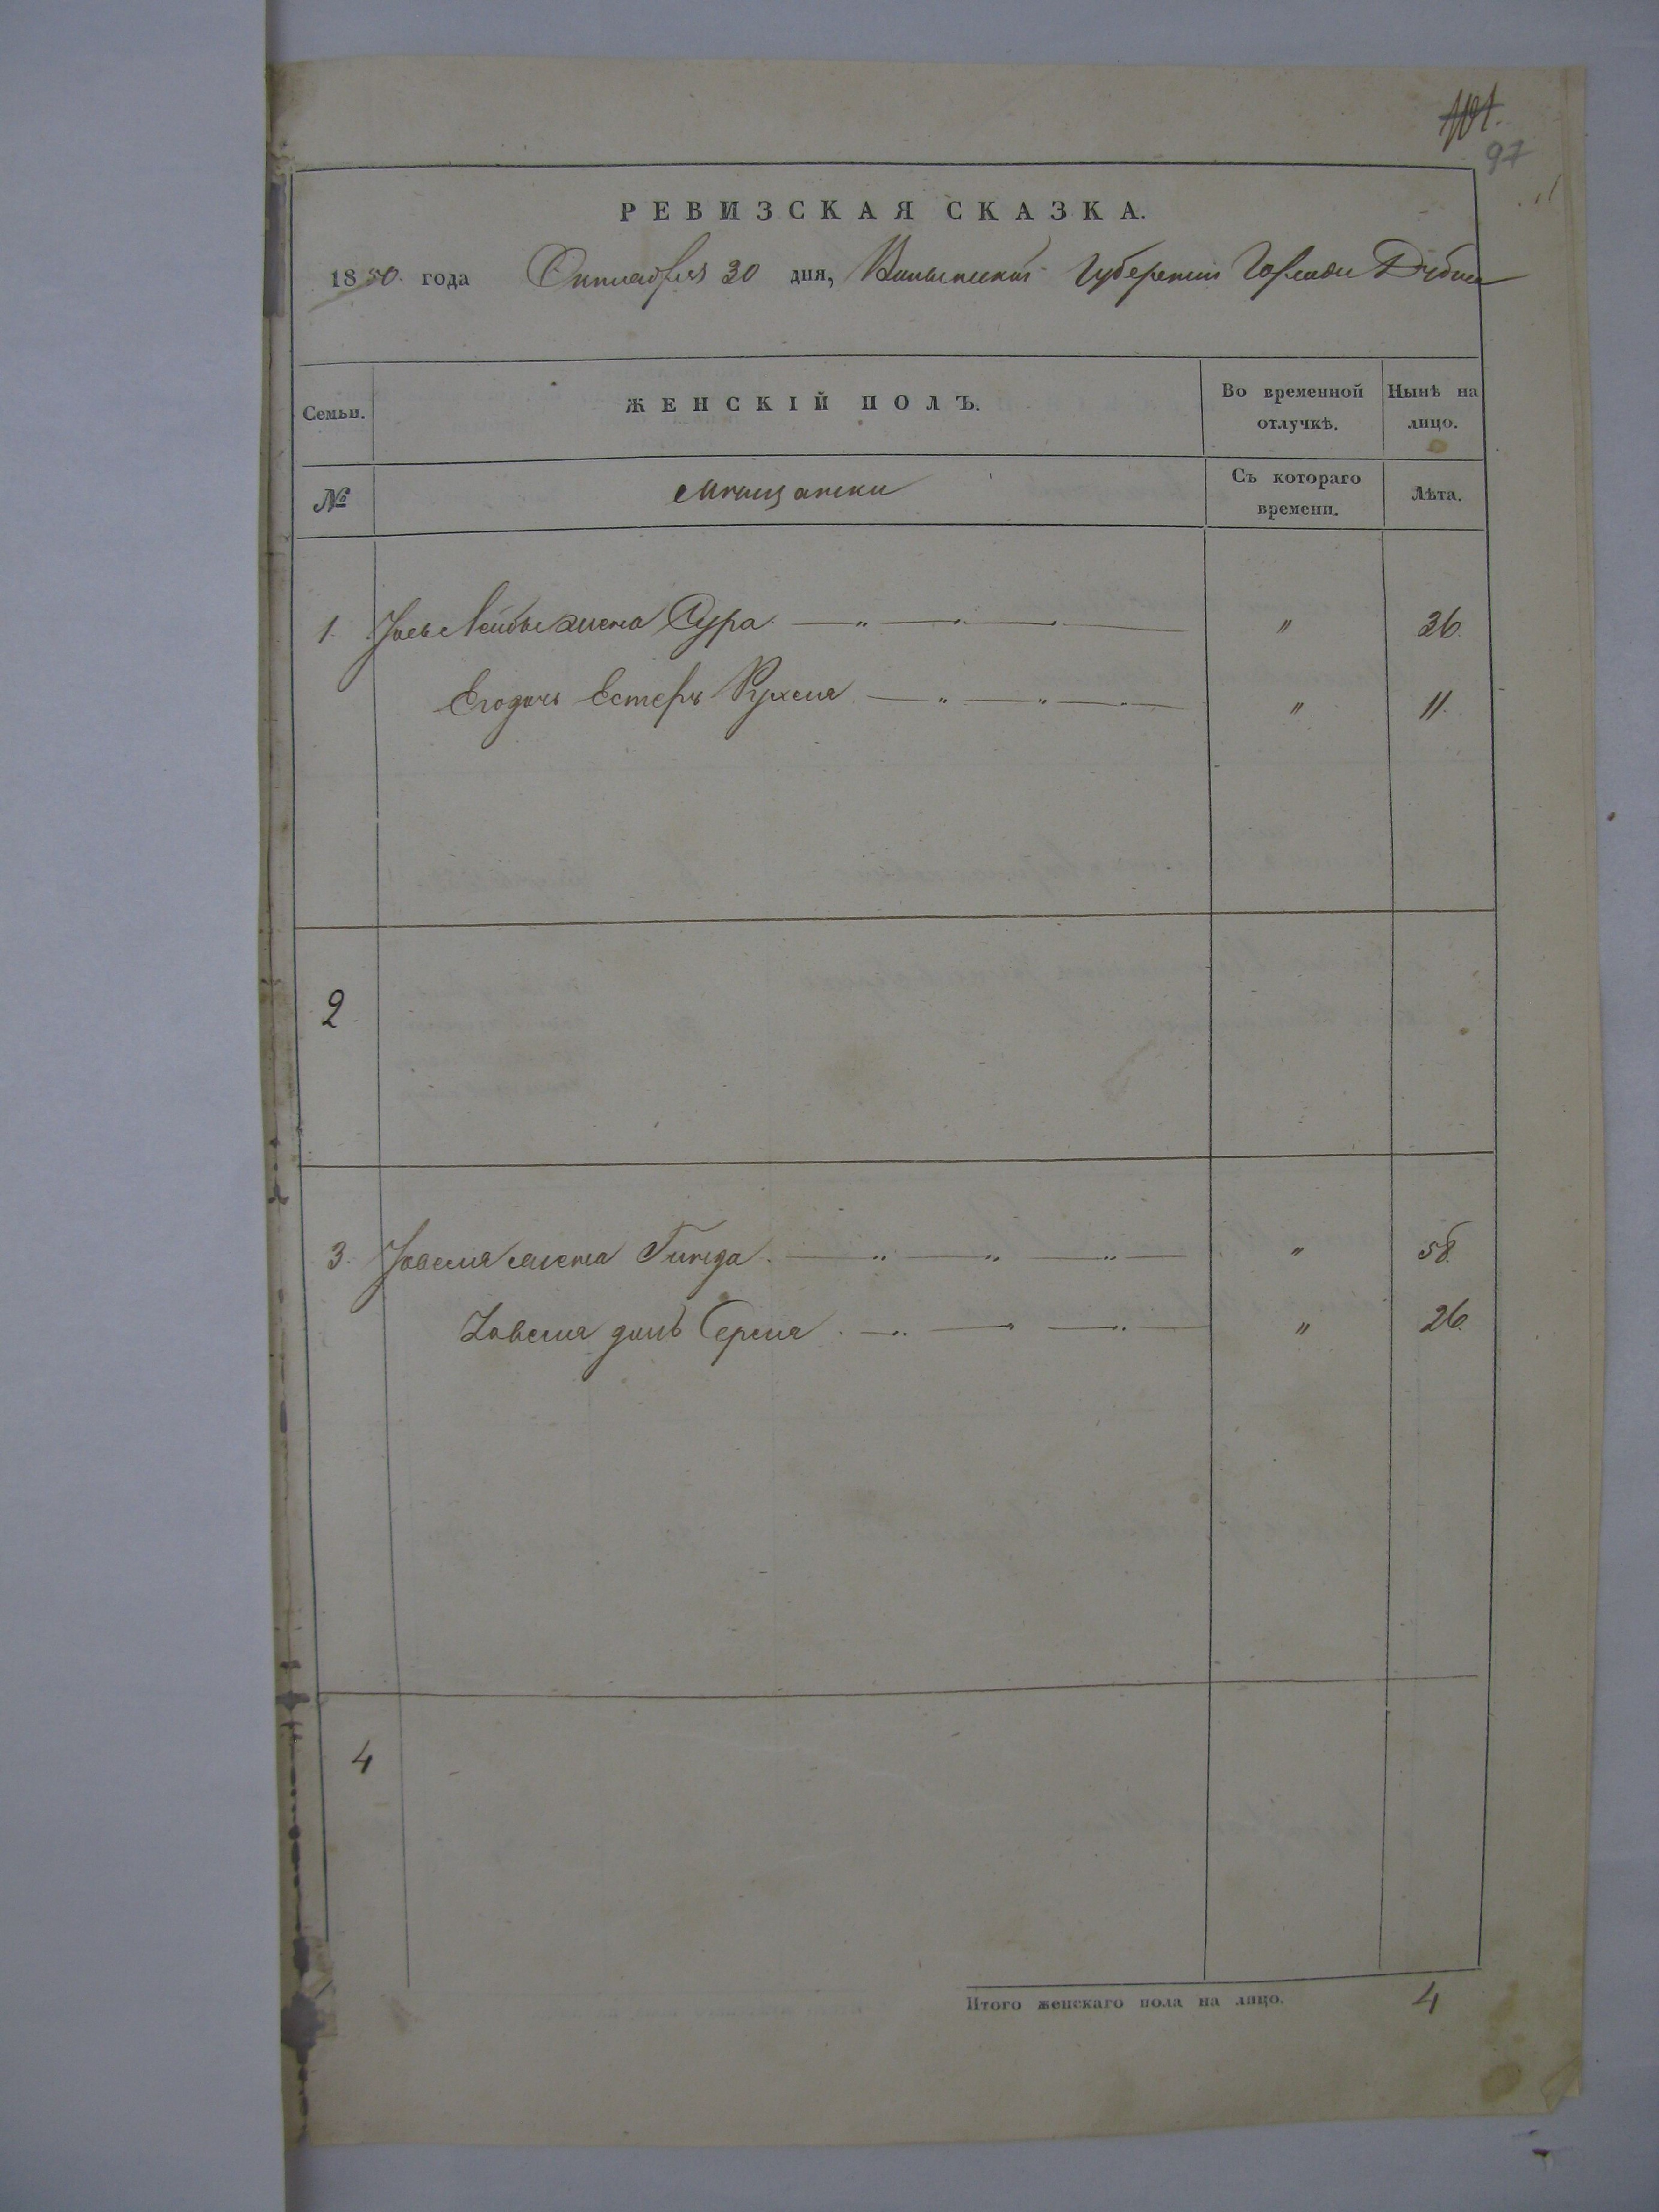 101.
97
РЕВИЗСКАЯ СКАЗКА.
1850 года Октиабря 30 дня, Волынской Губернии Города Дубна
Семьи.
ЖЕНСКІЙ ПОЛЪ.
Во временной отлучкѣ.
Нынѣ на лицо.
№
Мѣщански
Съ котораго времени.
Лѣта.
1. Лейбы жена Сура — „ — „ — „ — „ 36.
Его дочь Естеръ Рухля — „ — „ — „ — „ 11.
2
3. Іовеля жена Гинда. — „ — „ — „ — „ 58.
Іовеля дочь Серля. — „ — „ — „ — „ 26.
4
Итого женскаго пола на лицо. 4